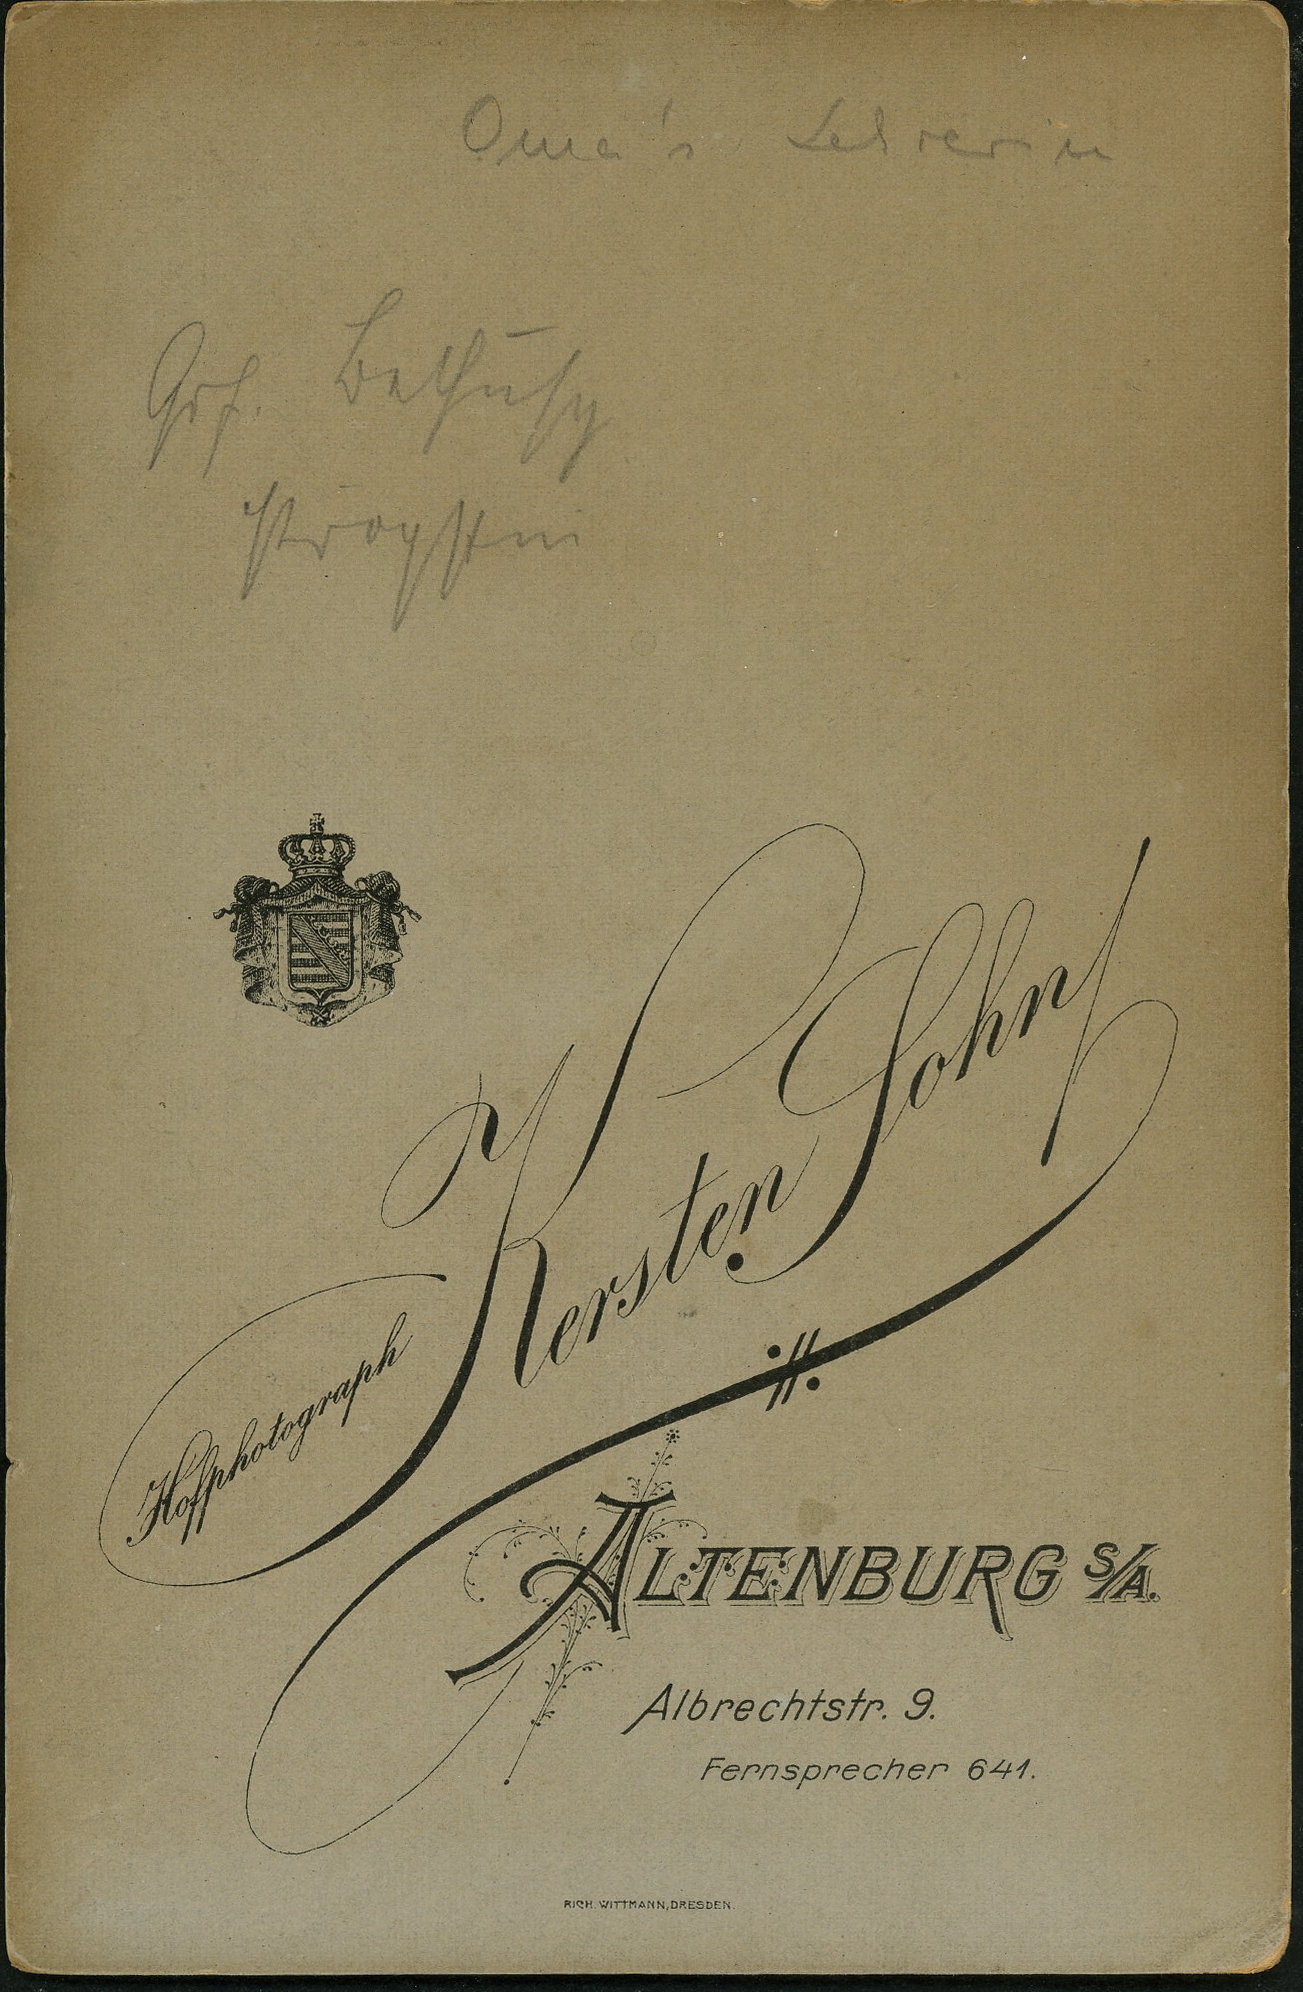 Oma's Lehrerin
Grf. Bethusy
Pröpstin
Hofphotograph
Kersten Sohn
ALTENBURG S/A.
Albrechtstr. 9.
Fernsprecher 641.
RICH. WITTMANN, DRESDEN.